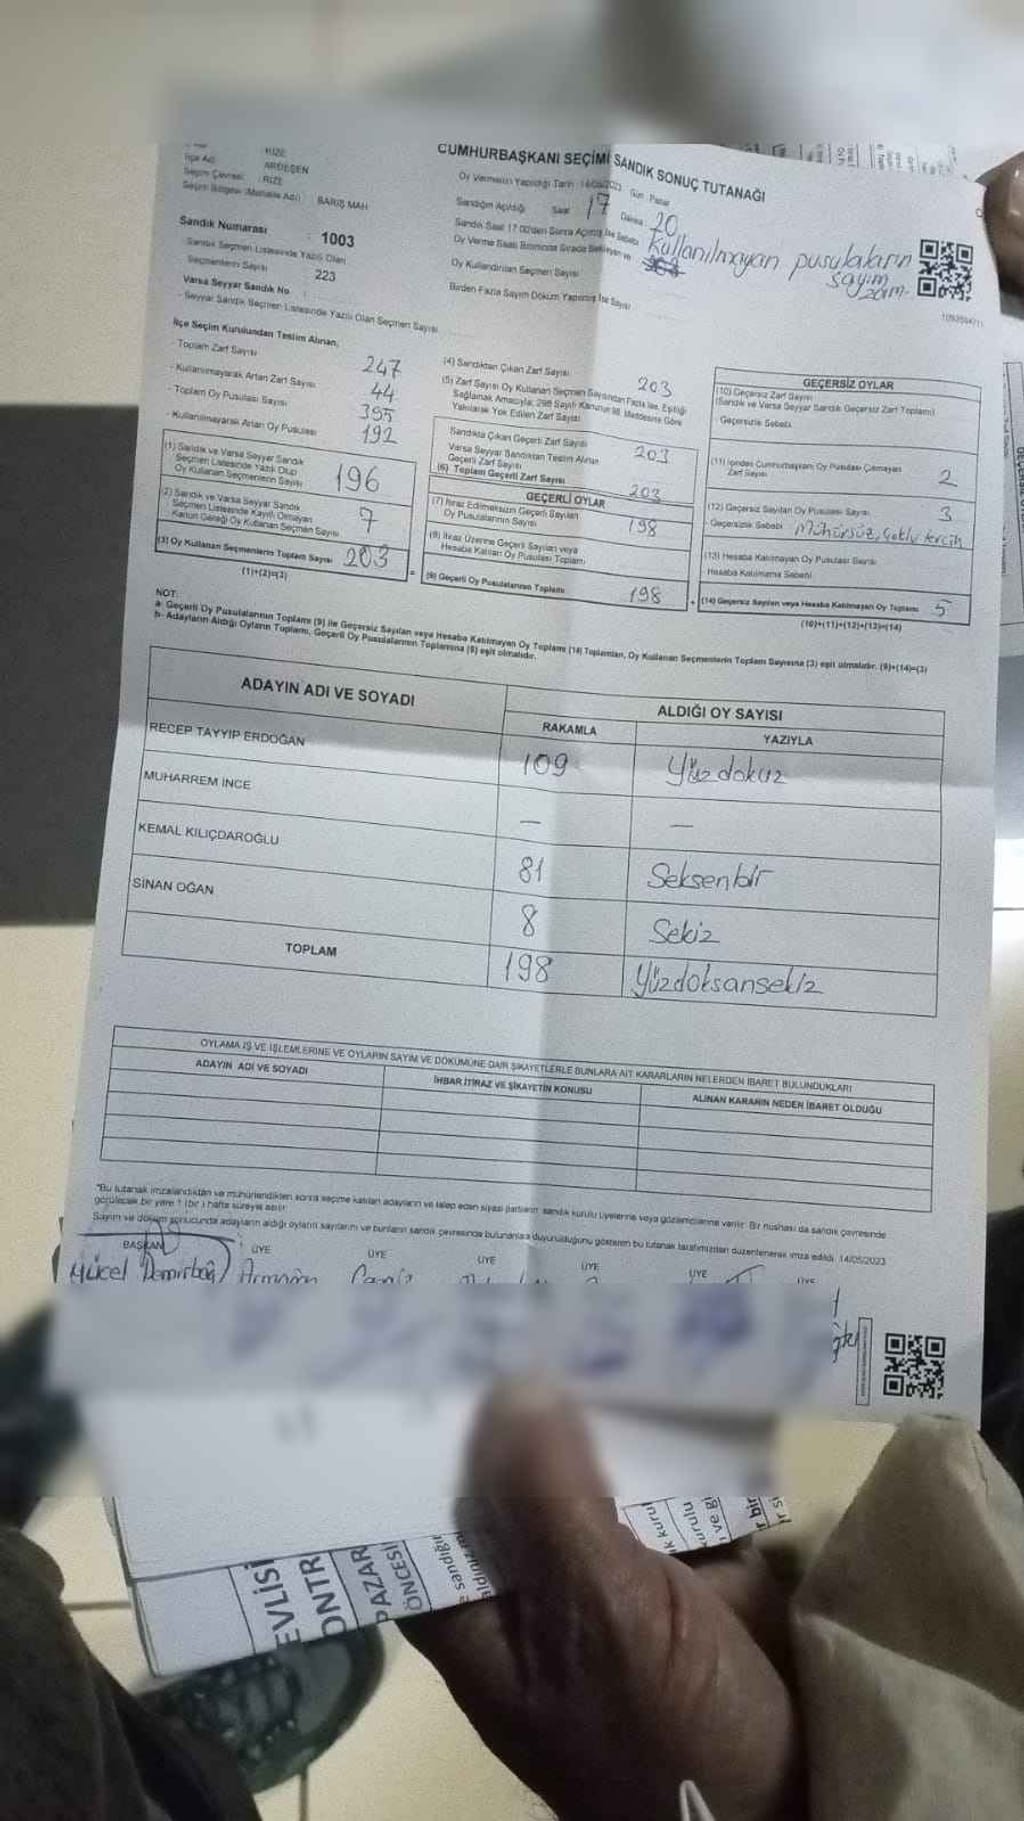 RİZE
İlçe Adı ARDEŞEN
Seçim Çevresi: RİZE
Seçim Bölgesi (Mahalle Adı) BARIŞ MAH
Sandık Numarası : 1003
Sandık Seçmen Listesinde Yazılı Olan
Seçmenlerin Sayısı 223
Varsa Seyyar Sandık No
- Seyyar Sandık Seçmen Listesinde Yazılı Olan Seçmen Sayısı
CUMHURBAŞKANI SEÇİMİ SANDIK SONUÇ TUTANAĞI
Oy Vermenin Yapıldığı Tarih 14/05/2023 Gün : Pazar
Sandığın Açıldığı Saat 17 Dakika 20
Sandık Saat 17.00'den Sonra Açılmış İse Sebebi Kullanılmayan pusulaların sayım
Oy Verme Saati Bitiminde Sırada Bekleyen ve
Oy Kullandırılan Seçmen Sayısı
Birden Fazla Sayım Döküm Yapılmış İse Sayısı
İlçe Seçim Kurulundan Teslim Alınan,
- Toplam Zarf Sayısı 247
- Kullanılmayarak Artan Zarf Sayısı 44
- Toplam Oy Pusulası Sayısı 395
- Kullanılmayarak Artan Oy Pusulası 192
(1) Sandık ve Varsa Seyyar Sandık
Seçmen Listesinde Yazılı Olup
Oy Kullanan Seçmenlerin Sayısı 196
(2) Sandık ve Varsa Seyyar Sandık
Seçmen Listesinde Kayıtlı Olmayan
Kanun Gereği Oy Kullanan Seçmen Sayısı 7
(3) Oy Kullanan Seçmenlerin Toplam Sayısı 203
(1)+(2)=(3)
(4) Sandıktan Çıkan Zarf Sayısı 203
(5) Zarf Sayısı Oy Kullanan Seçmen Sayısından Fazla İse, Eşitliği
Sağlamak Amacıyla; 298 Sayılı Kanunun 98. Maddesine Göre
Yakılarak Yok Edilen Zarf Sayısı
Sandıkta Çıkan Geçerli Zarf Sayısı 203
Varsa Seyyar Sandıktan Teslim Alınan
Geçerli Zarf Sayısı
(6) Toplam Geçerli Zarf Sayısı 203
GEÇERLİ OYLAR
(7) İtiraz Edilmeksizin Geçerli Sayılan
Oy Pusulalarının Sayısı 198
(8) İtiraz Üzerine Geçerli Sayılan veya
Hesaba Katılan Oy Pusulası Toplamı
(9) Geçerli Oy Pusulalarının Toplamı 198
GEÇERSİZ OYLAR
(10) Geçersiz Zarf Sayısı
(Sandık ve Varsa Seyyar Sandık Geçersiz Zarf Toplamı)
Geçersizlik Sebebi
(11) İçinden Cumhurbaşkanı Oy Pusulası Çıkmayan
Zarf Sayısı 2
(12) Geçersiz Sayılan Oy Pusulası Sayısı 3
Geçersizlik Sebebi Mühürsüz, Çoklu tercih
(13) Hesaba Katılmayan Oy Pusulası Sayısı
Hesaba Katılmama Sebebi
(14) Geçersiz Sayılan veya Hesaba Katılmayan Oy Toplamı 5
(10)+(11)+(12)+(13)=(14)
NOT:
a- Geçerli Oy Pusulalarının Toplamı (9) ile Geçersiz Sayılan veya Hesaba Katılmayan Oy Toplamı (14) Toplamları, Oy Kullanan Seçmenlerin Toplam Sayısına (3) eşit olmalıdır. (9)+(14)=(3)
b- Adayların Aldığı Oyların Toplamı, Geçerli Oy Pusulalarının Toplamına (9) eşit olmalıdır.
ADAYIN ADI VE SOYADI
ALDIĞI OY SAYISI
RAKAMLA YAZIYLA
RECEP TAYYIP ERDOĞAN 109 Yüzdokuz
MUHARREM İNCE — —
KEMAL KILIÇDAROĞLU 81 Seksenbir
SİNAN OĞAN 8 Sekiz
TOPLAM 198 Yüzdoksansekiz
OYLAMA İŞ VE İŞLEMLERİNE VE OYLARIN SAYIM VE DÖKÜMÜNE DAİR ŞİKAYETLERLE BUNLARA AİT KARARLARIN NELERDEN İBARET BULUNDUKLARI
ADAYIN ADI VE SOYADI İHBAR İTİRAZ VE ŞİKAYETİN KONUSU ALINAN KARARIN NEDEN İBARET OLDUĞU
"Bu tutanak imzalandıktan ve mühürlendikten sonra seçime katılan adayların ve talep eden siyasi partilerin sandık kurulu üyelerine veya gözlemcilerine verilir. Bir nüshası da sandık çevresinde
görülecek bir yere 1 (bir ) hafta süreyle asılır.
Sayım ve döküm sonucunda adayların aldığı oyların sayılarını ve bunların sandık çevresinde bulunanlara duyurulduğunu gösteren bu tutanak tarafımızdan düzenlenerek imza edildi. 14/05/2023
BAŞKAN ÜYE ÜYE ÜYE ÜYE ÜYE ÜYE
Yücel Demirbağ
EVLİSİ
ONTR
PAZAR
ÖNCESİ
sandığı
aldınız
k kurul
kurulu
ve gi
r bir